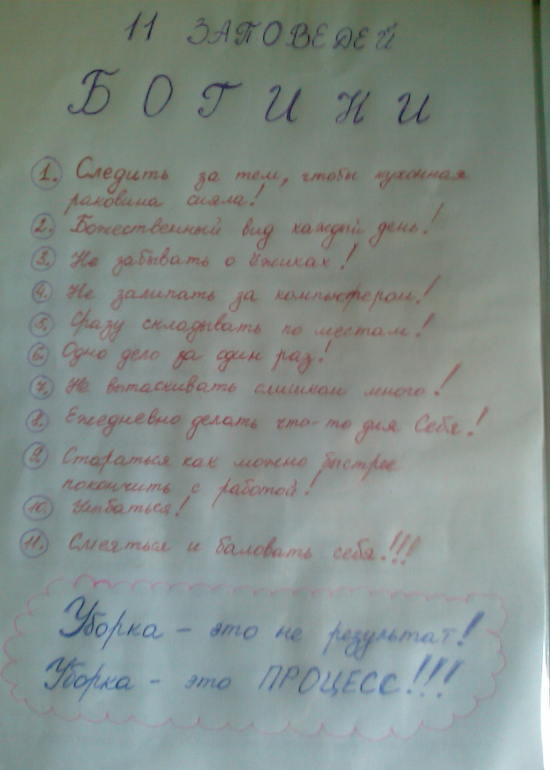 11 ЗАПОВЕДЕЙ
БОГИНИ
1. Следить за тем, чтобы кухонная
раковина сияла!
2. Божественный вид каждый день!
3. Не забывать о Ёжиках!
4. Не залипать за компьютером!
5. Сразу складывать по местам!
6. Одно дело за один раз!
7. Не вытаскивать слишком много!
8. Ежедневно делать что-то для Себя!
9. Стараться как можно быстрее
покончить с работой!
10. Улыбаться!
11. Смеяться и баловать себя!!!
Уборка - это не результат!
Уборка - это ПРОЦЕСС!!!